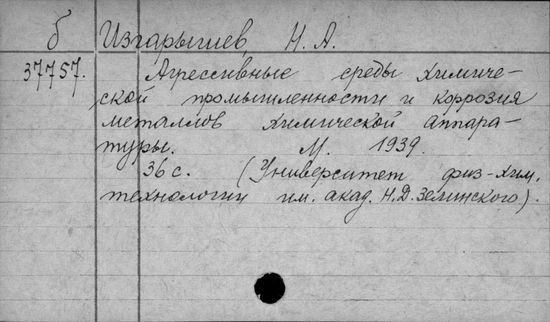 б Изгарышев, Н. А.
37757. Агрессивные среды химиче-
ской промышленности и коррозия
металлов химической аппара-
туры. М. 1939.
36 с. (Университет физ-хим.
технологии им. акад. Н. Д. Зелинского).